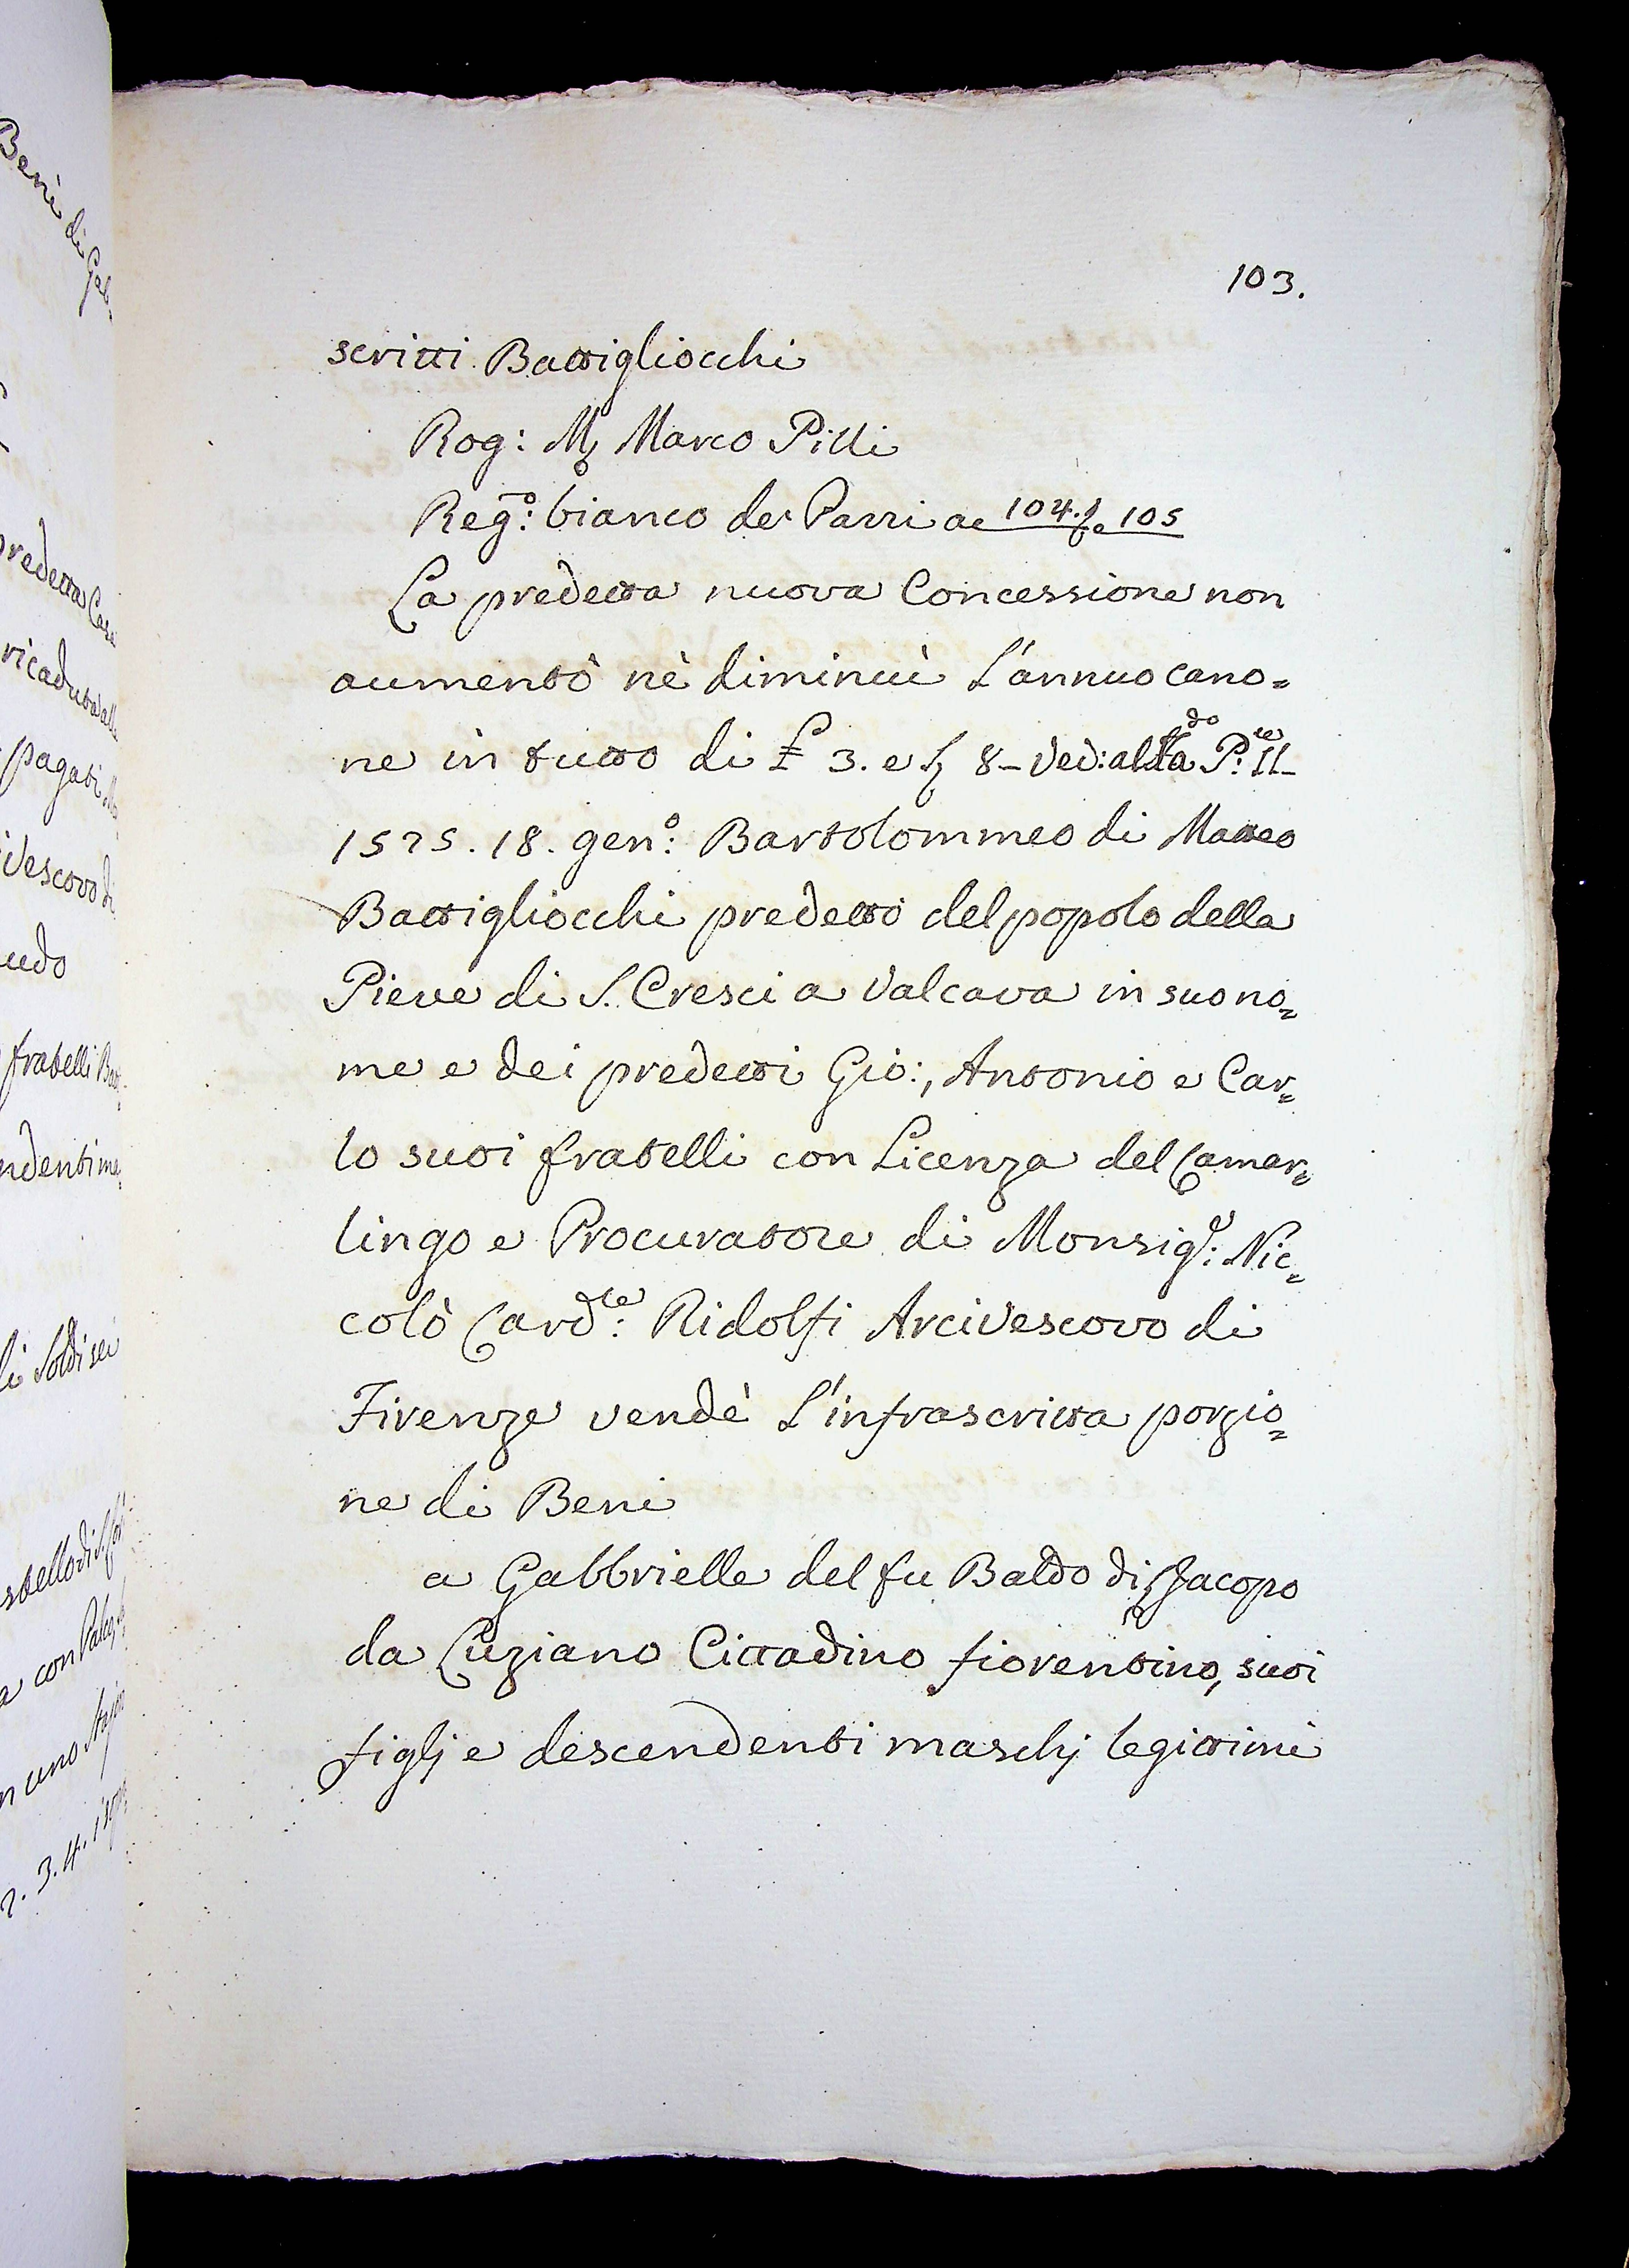 Beni di Gab
predetta Casa
ricaduta alla
pagati
ivescovo di
udo
fratelli Batt
ndenti ma
li Soldi sei
stello di S.
a con
n uno Stajo
2. 3. 4.
103.
scritti Battigliocchi
Rog: Mr. Marco Pilli
Reg.o: bianco de Parri a c 104.t e 105
La predetta nuova Concessione non
aumentò nè diminuì l'annuo cano=
ne in tutto di £ 3. e S 8 - Ved: P.te: II-
1525. 18. gen.o: Bartolommeo di Matteo
Battigliocchi predetto del popolo della
Pieve di S. Cresci a Valcava in suo no=
me e dei predetti Gio:, Antonio e Car=
lo suoi fratelli con Licenza del Camar=
lingo e Procuratore di Monsig.r: Nic=
colò Card.le: Ridolfi Arcivescovo di
Firenze vendè l'infrascritta porzio=
ne di Beni
a Gabbrielle del fu Baldo di Jacopo
da Cuziano Cittadino fiorentino, suoi
figlj e descendenti maschj legittimi